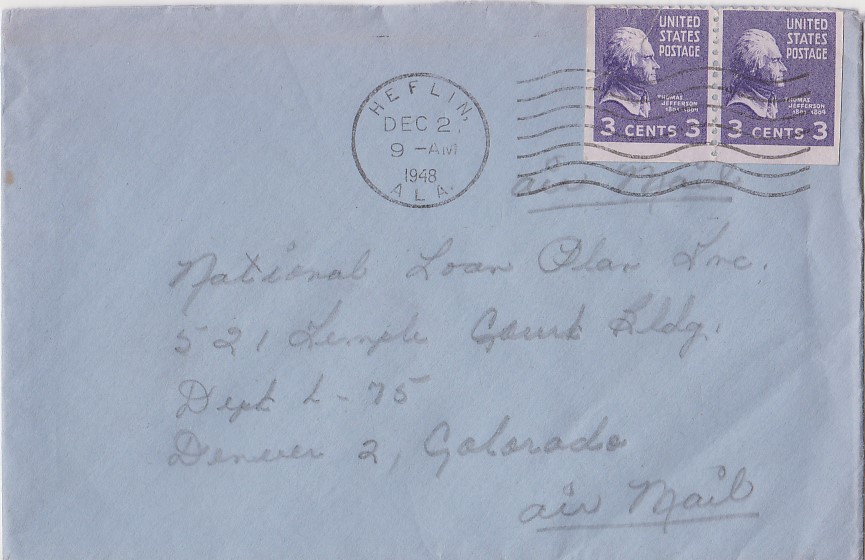 UNITED
STATES
POSTAGE
THOMAS
JEFFERSON
1801-1809
3 CENTS 3
UNITED
STATES
POSTAGE
THOMAS
JEFFERSON
1801-1809
3 CENTS 3
HEFLIN,
DEC 2,
9 -AM
1948
ALA.
air Mail
National Loan Plan Inc.
521 Temple Court Bldg.
Dept L-75
Denver 2, Colorado
air Mail